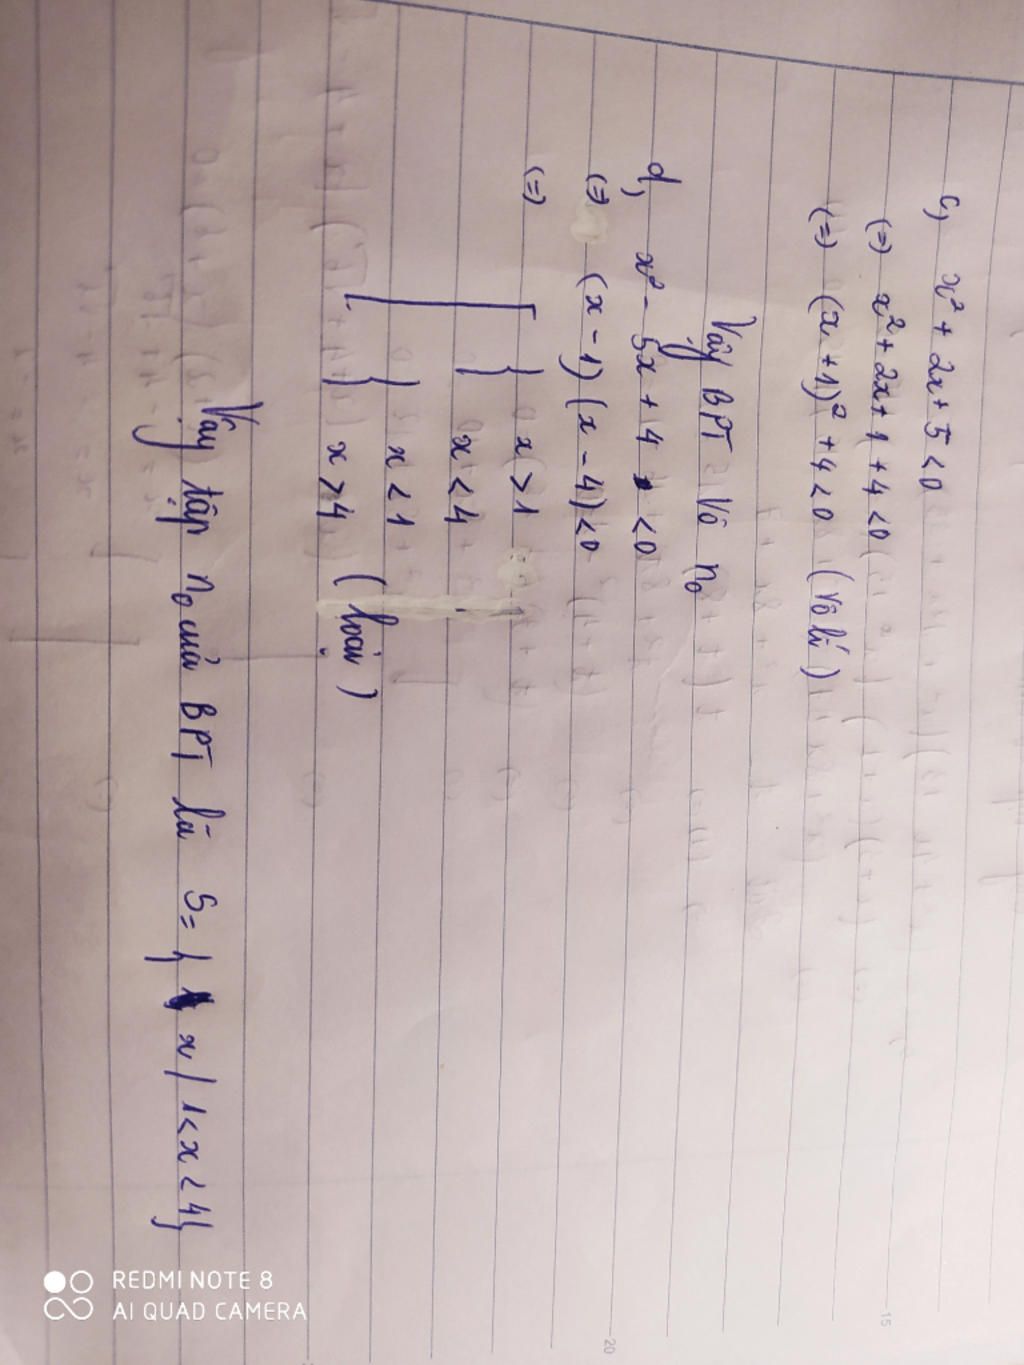 c, x² + 2x + 5 < 0
(=) x² + 2x + 1 + 4 < 0
(=) (x + 1)² + 4 < 0 (Vô lí)
Vậy BPT Vô n₀
d, x² - 5x + 4 < 0
(=) (x - 1)(x - 4) < 0
(=) [ { x > 1
x < 4
{ x < 1
x > 4 (loại)
Vậy tập n₀ của BPT là S = { x / 1 < x < 4 }
REDMI NOTE 8
AI QUAD CAMERA
15
20